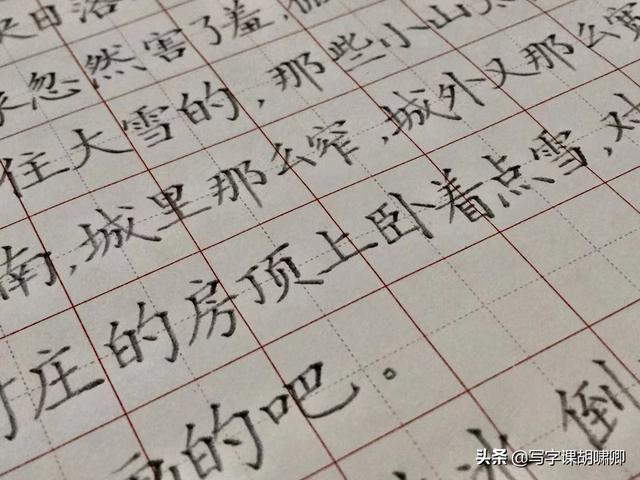 日落
忽然害了羞,
住大雪的,那些小山
南,城里那么窄,城外又那么宽
村庄的房顶上卧着点雪,对
的吧。
冰 倒
头条 @写字课胡啸卿